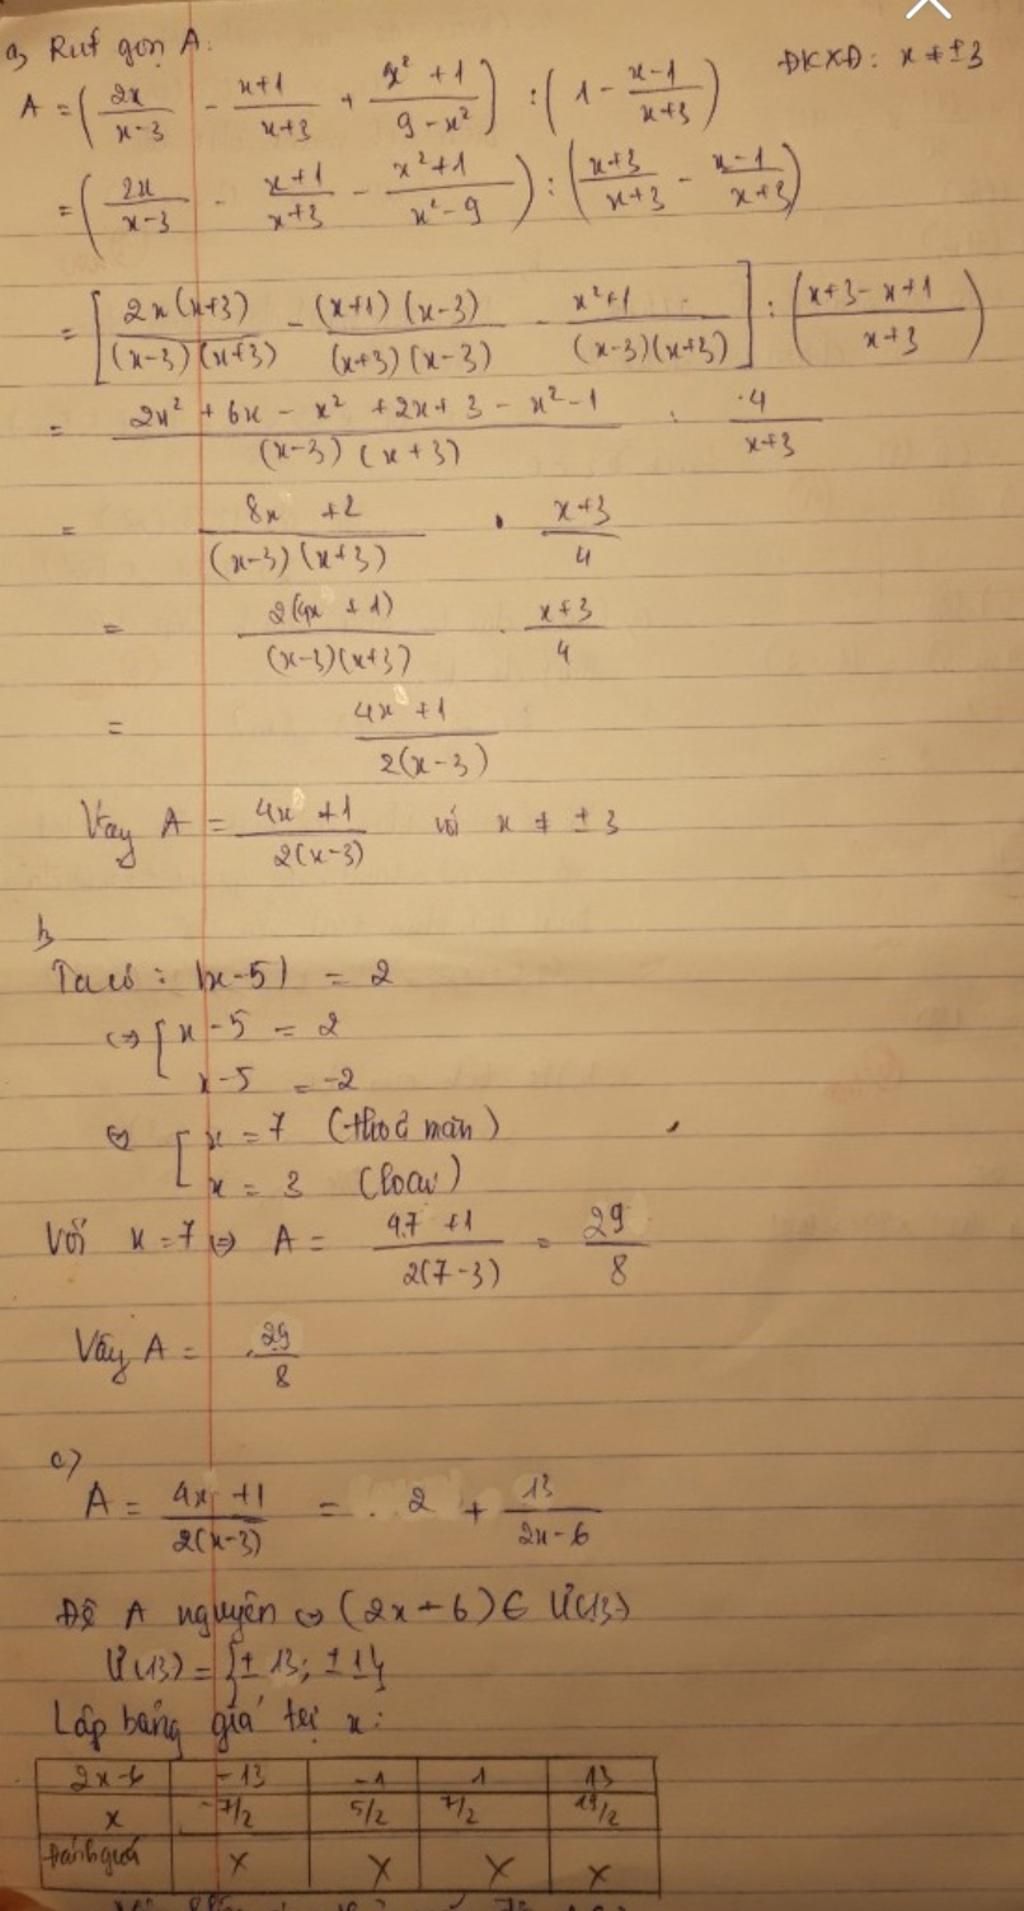 a, Rút gọn A: ĐKXĐ: x ≠ ±3
A = (2x/(x-3) - (x+1)/(x+3) + (x²+1)/(9-x²)) : (1 - (x-1)/(x+3))
= (2x/(x-3) - (x+1)/(x+3) - (x²+1)/(x²-9)) : ((x+3)/(x+3) - (x-1)/(x+3))
= [2x(x+3)/((x-3)(x+3)) - (x+1)(x-3)/((x+3)(x-3)) - (x²+1)/((x-3)(x+3))] : ((x+3-x+1)/(x+3))
= (2x²+6x-x²+2x+3-x²-1)/((x-3)(x+3)) : 4/(x+3)
= (8x+2)/((x-3)(x+3)) . (x+3)/4
= 2(4x+1)/((x-3)(x+3)) . (x+3)/4
= (4x+1)/(2(x-3))
Vậy A = (4x+1)/(2(x-3)) với x ≠ ±3
b
Ta có : |x-5| = 2
⇔ [ x-5 = 2
x-5 = -2
⇔ [ x = 7 (thoả mãn)
x = 3 (loại)
Với x = 7 ⇒ A = (4.7+1)/(2(7-3)) = 29/8
Vậy A = 29/8
c)
A = (4x+1)/(2(x-3)) = 2 + 13/(2x-6)
Để A nguyên ⇔ (2x-6) ∈ Ư(13)
Ư(13) = {±13; ±1}
Lập bảng giá trị x:
2x-6 -13 -1 1 13
x -7/2 5/2 7/2 19/2
Đánh giá X X X X